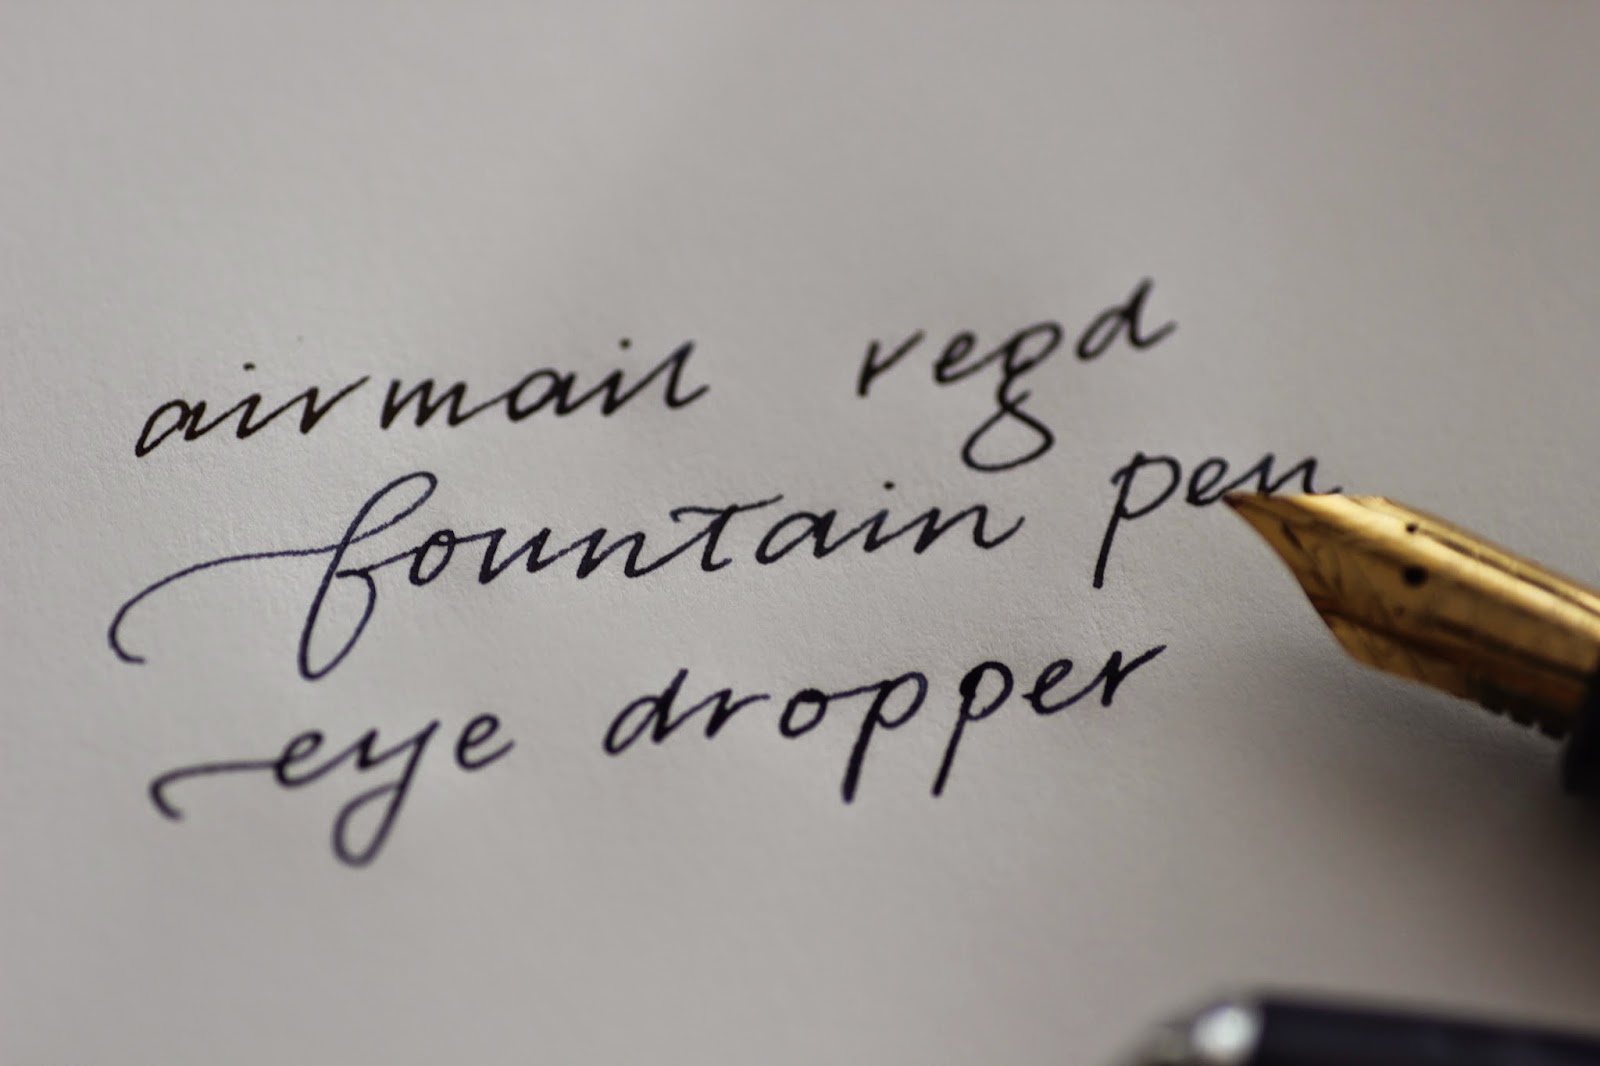 airmail regd
fountain pen
eye dropper